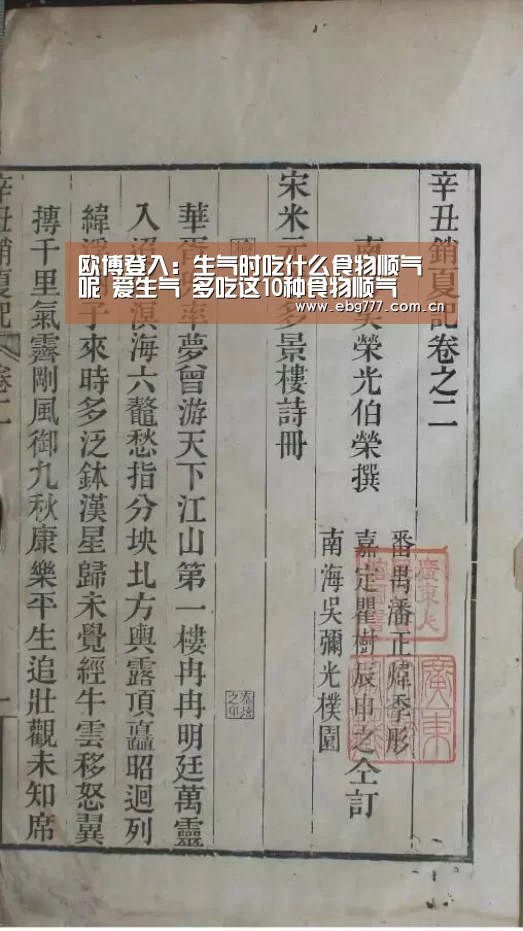 辛丑銷夏記卷之二
南
榮光伯榮撰
番禺潘正煒季彤
嘉定瞿樹辰申之仝訂
南海吳彌光樸園
宋米元
多景樓詩冊
華胥
率夢曾游天下江山第一樓冉冉明廷萬靈
入
溟海六鼇愁指分坱圠方輿露頂矗昭迴列
緯
子來時多泛鉢漢星歸未覺經牛雲移怒翼
摶千里氣霽剛風御九秋康樂平生追壯觀未知席
辛丑銷夏記
卷二
一
欧博登入：生气时吃什么食物顺气
呢 爱生气 多吃这10种食物顺气
www.ebg777.com.cn
廣東